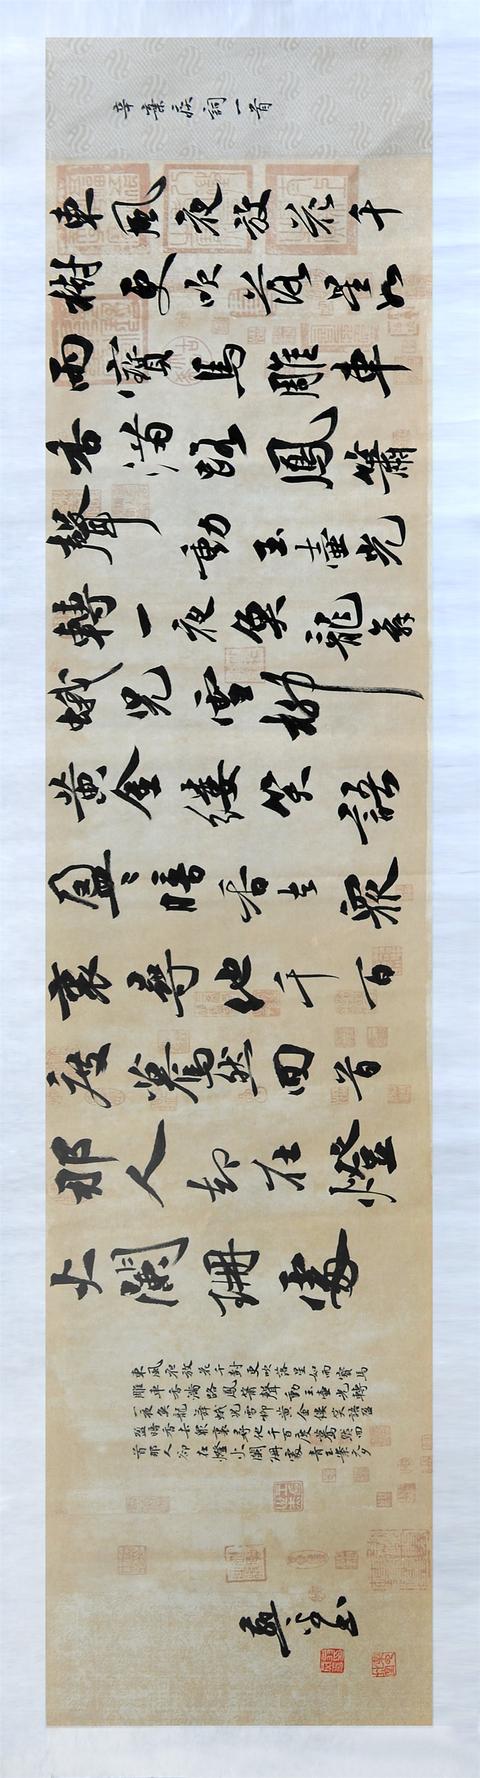 辛棄疾詞一首
東風夜放花千
樹更吹落星如
雨寶馬雕車
香滿路鳳簫
聲動玉壺光
轉一夜魚龍舞
蛾兒雪柳
黃金縷笑語
盈々暗香去眾
裏尋他千百
度驀然回首
那人卻在燈
火闌珊處
東風夜放花千樹更吹落星如雨寶馬
雕車香滿路鳳簫聲動玉壺光轉
一夜魚龍舞蛾兒雪柳黃金縷笑語盈
盈暗香去眾裏尋他千百度驀然回
首那人卻在燈火闌珊處青玉案元夕